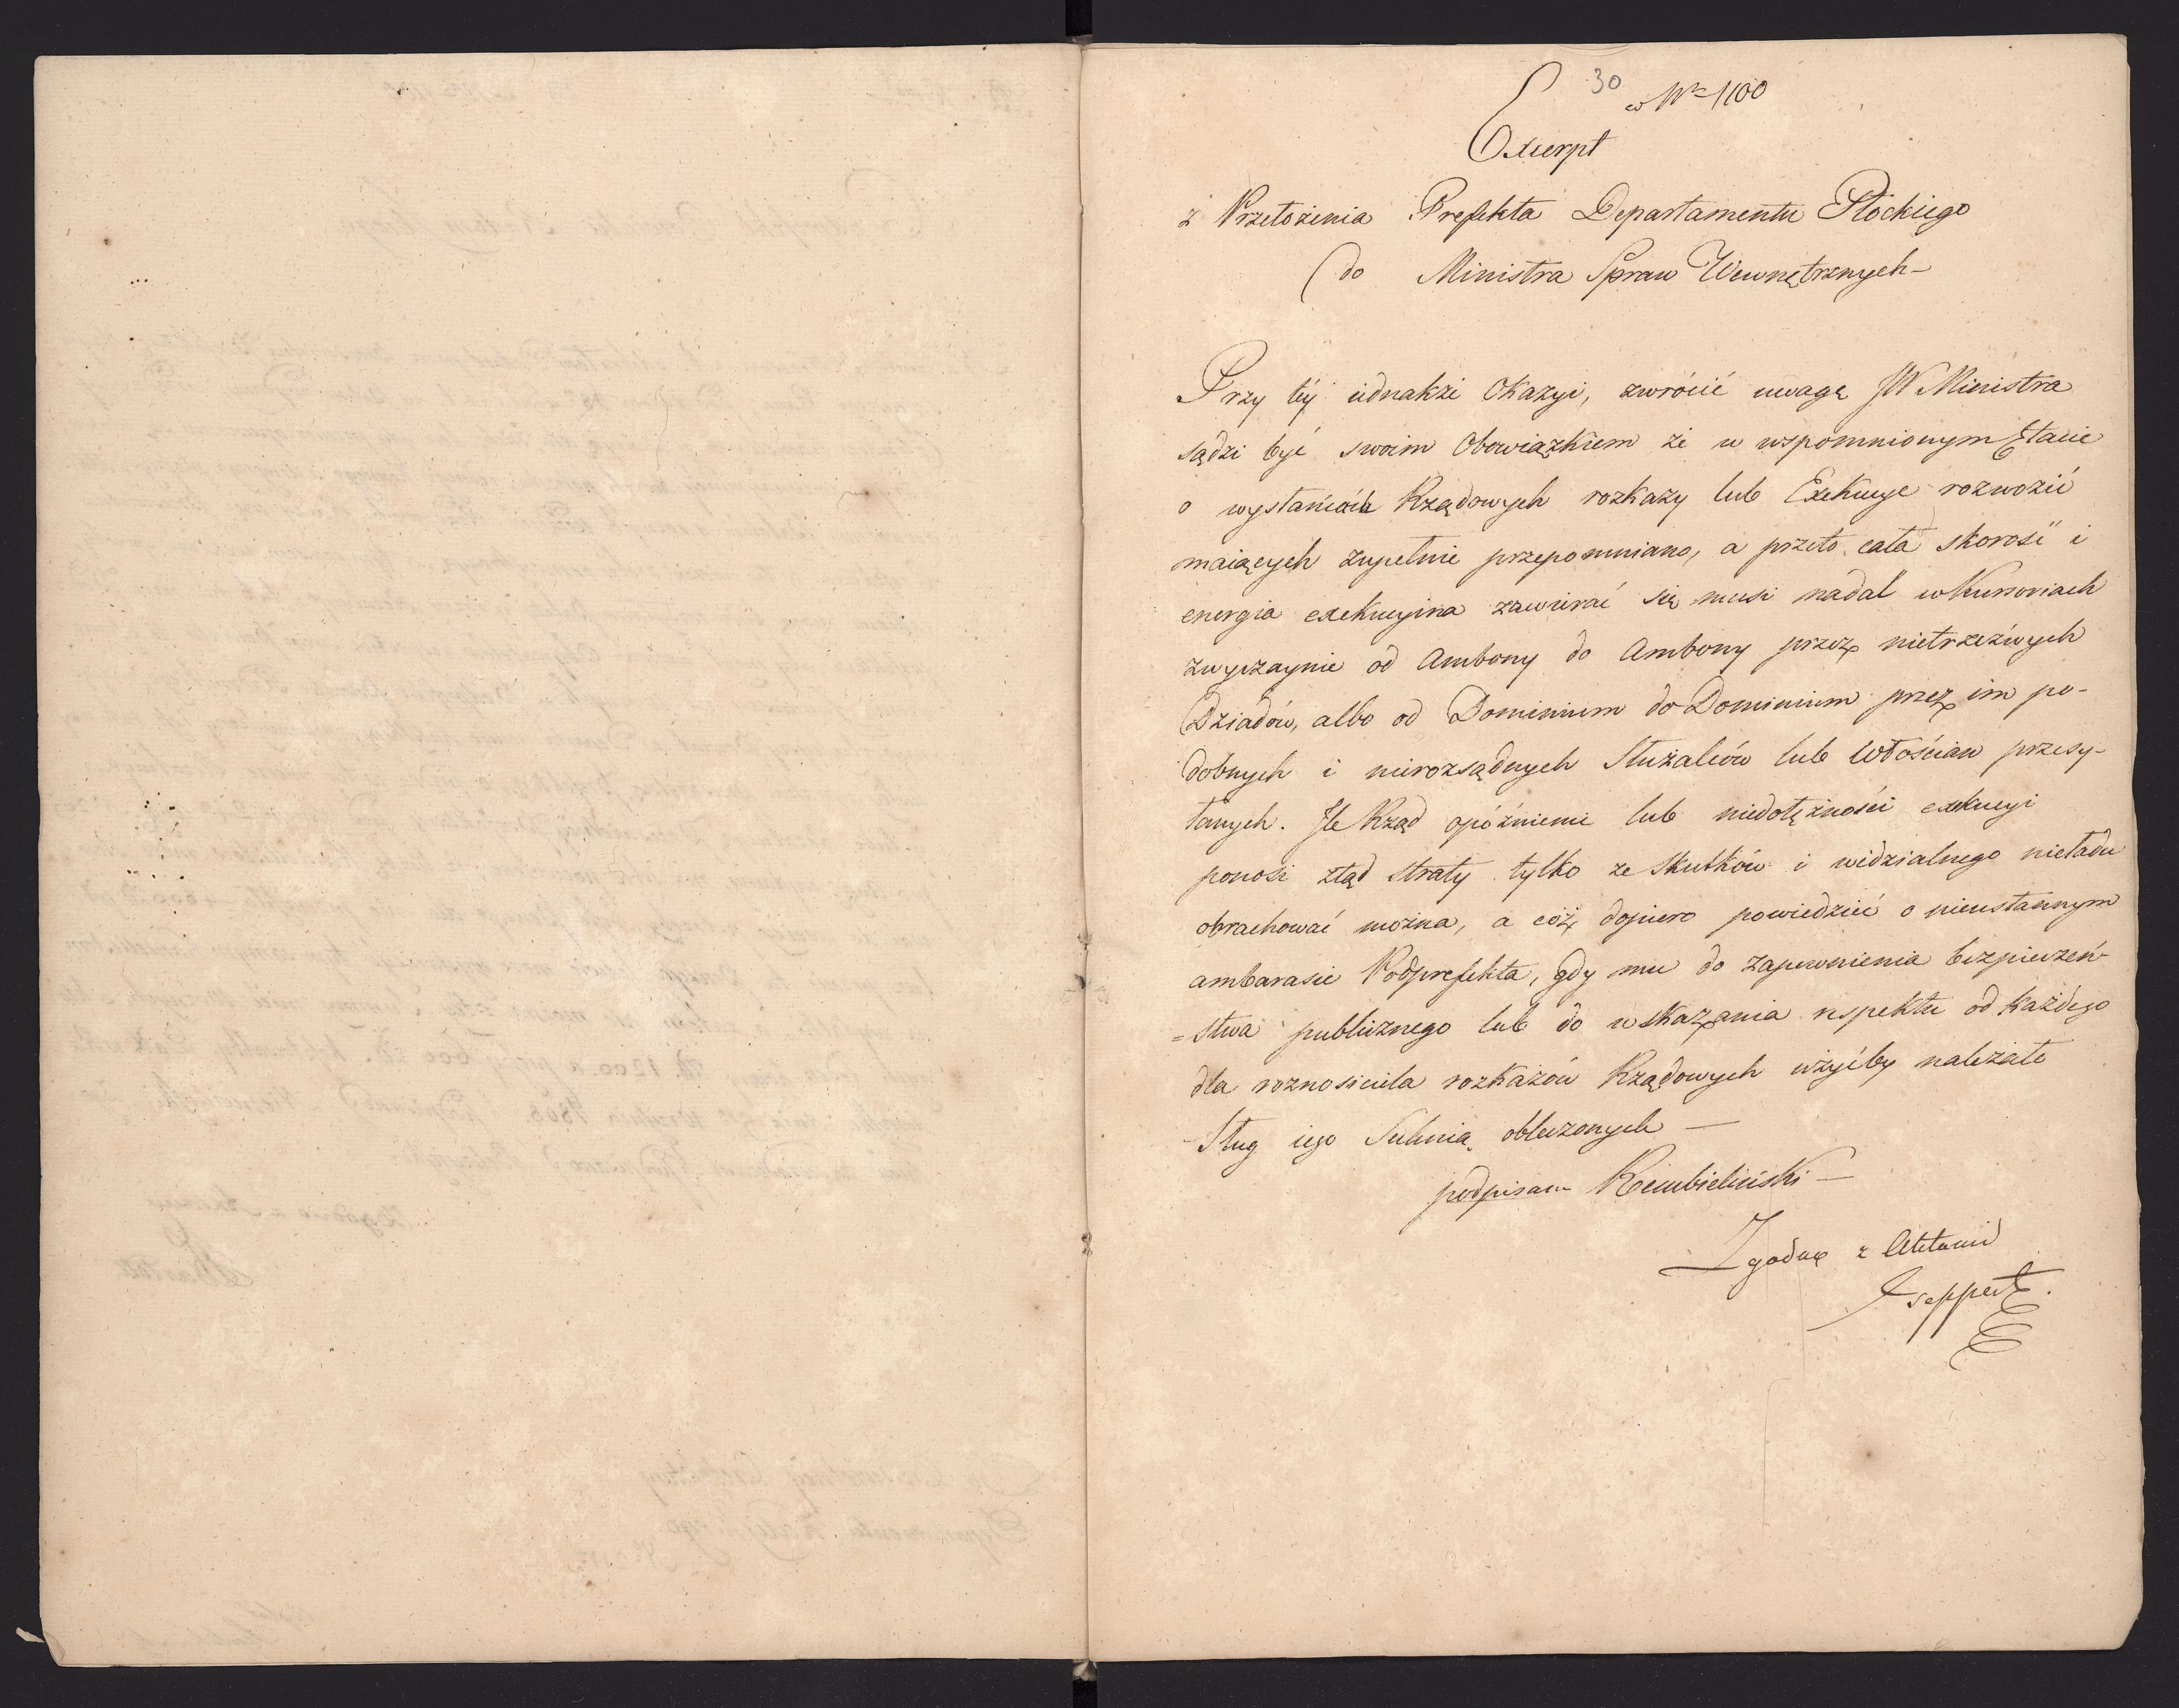 30 w Nr 1100
Excerpt
z Przełożenia Prefekta Departamentu Płockiego
do Ministra Spraw Wewnętrznych-
Przy téy iednakże Okazyi, zwrócić uwagę JW Ministra
sądzi być swoim Obowiązkiem że w wspomnionym Etacie
o wysłańcach Rządowych rozkazy lub Exekucye rozwozić
maiących zupełnie przepomniano, a przeto cała skorość i
energia exekucyina zawierać się musi nadal w Kursoriach
zwyczaynie od Ambony do Ambony przez nietrzeźwych
Dziadów, albo od Dominium do Dominium przez im po-
dobnych i nierozsądnych Służalców lub Włościan przesy-
łanych. Ile Rząd opóźnienie lub niedołężności exekucyi
ponosi ztąd straty tylko ze Skutków i widzialnego nieładu
obrachować można, a cóż dopiero powiedzieć o nieustannym
ambarasie Podprefekta, gdy mu do zapewnienia bezpieczeń-
=stwa publicznego lub do wskazania respektu od każdego
dla roznosiciela rozkazów Rządowych użyćby należało
Sług iego Suknią obleczonych —
podpisano Rembieliński —
Zgodno z Aktami